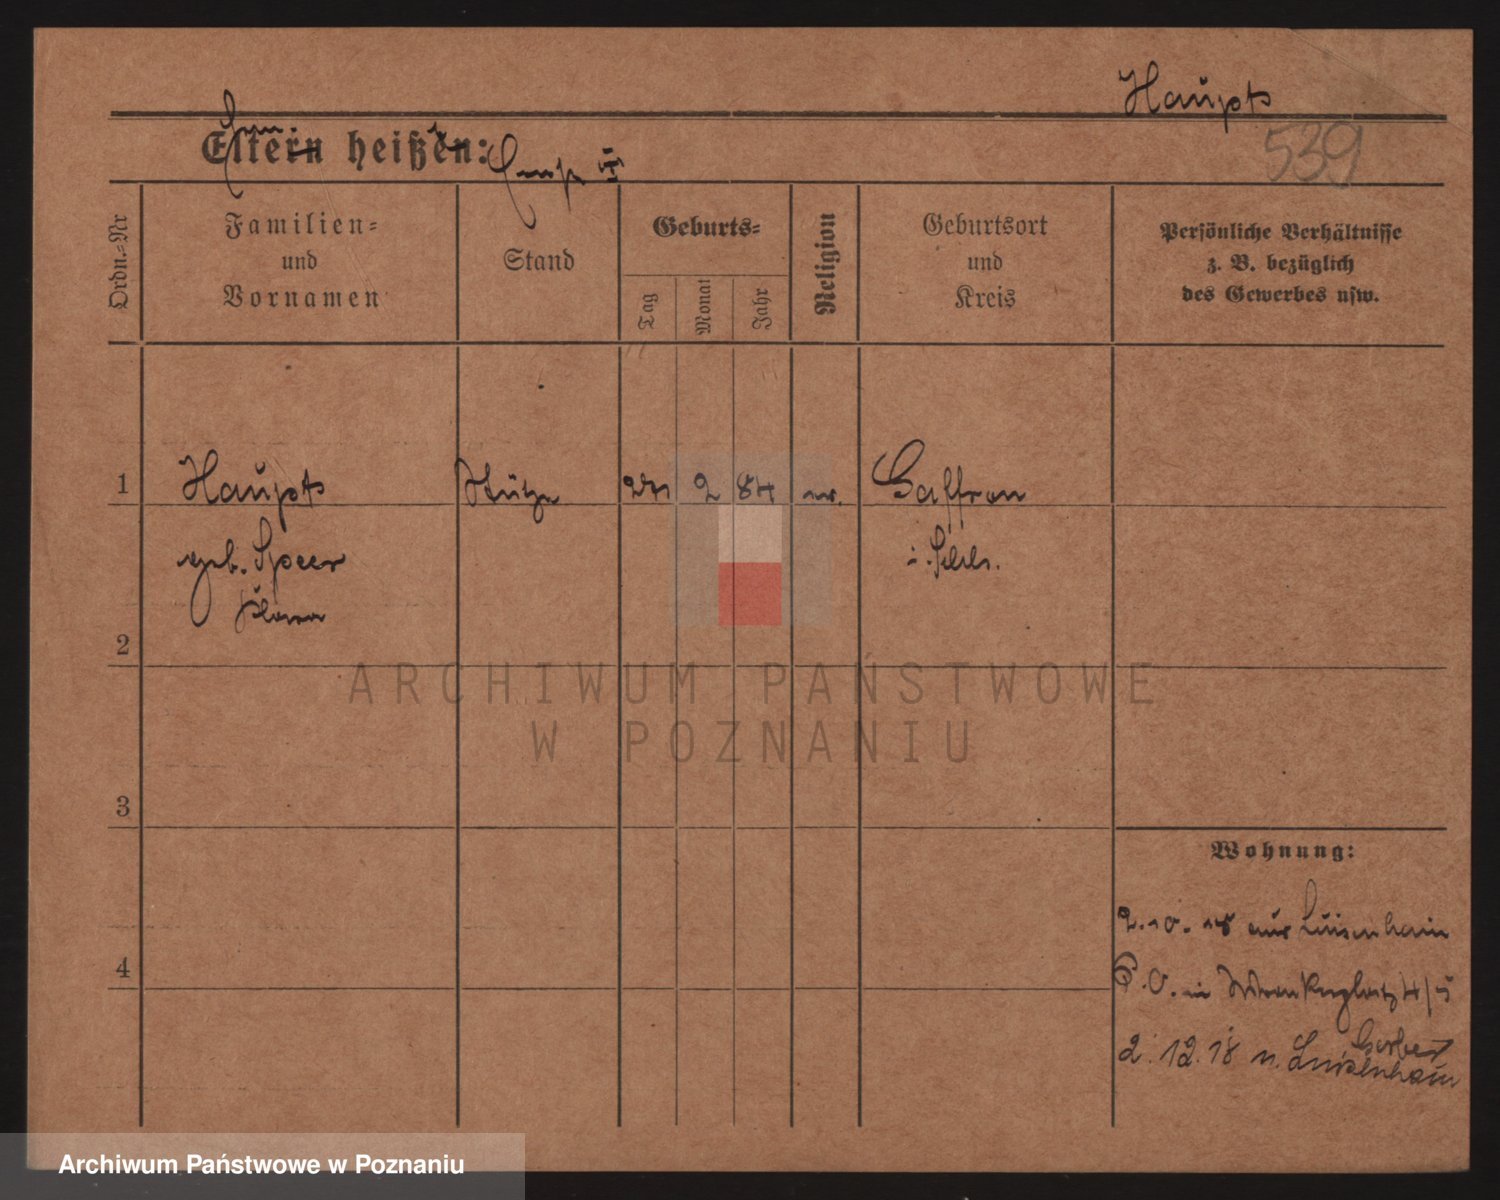 Haupt
539
Eltern heißen:
Ordn.-Nr
Familien-
und
Vornamen
Stand
Geburts-
Tag
Monat
Jahr
Religion
Geburtsort
und
Kreis
Persönliche Verhältnisse
z. B. bezüglich
des Gewerbes usw.
1 Haupt Stütze 27 2 84 ev. Gaffron
geb. Speer i. Schls.
Klara
2
3
4
Wohnung:
2.10.18 aus Luisenhain
P.O. in 4/5
2.12.18 n. Luisenhain
ARCHIWUM PAŃSTWOWE
W POZNANIU
Archiwum Państwowe w Poznaniu